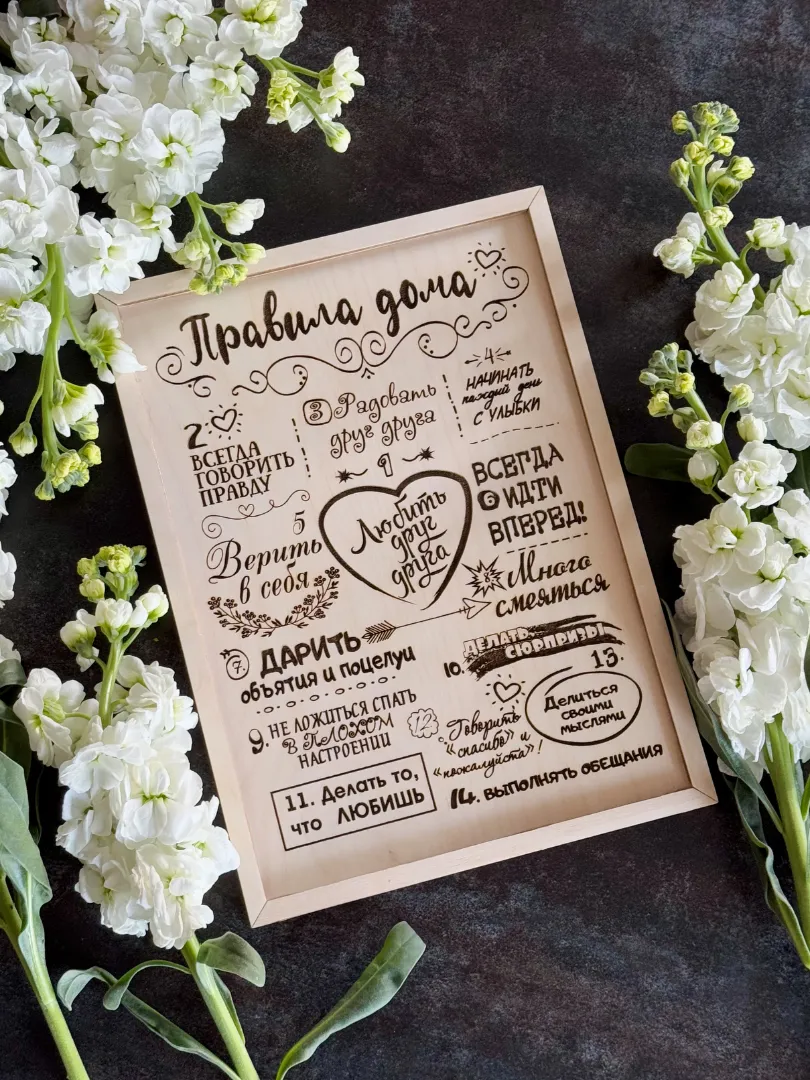 Правила дома
2
ВСЕГДА
ГОВОРИТЬ
ПРАВДУ
3 Радовать
друг друга
4
НАЧИНАТЬ
каждый день
С УЛЫБКИ
1
Любить
друг
друга
5
Верить
в себя
ВСЕГДА
6 ИДТИ
ВПЕРЕД!
7. ДАРИТЬ
объятия и поцелуи
8 Много
смеяться
9. НЕ ЛОЖИТЬСЯ СПАТЬ
В ПЛОХОМ
НАСТРОЕНИИ
10. ДЕЛАТЬ
СЮРПРИЗЫ
11. Делать то,
что ЛЮБИШЬ
12 Говорить
"спасибо" и
"пожалуйста"!
13.
Делиться
своими
мыслями
14. ВЫПОЛНЯТЬ ОБЕЩАНИЯ